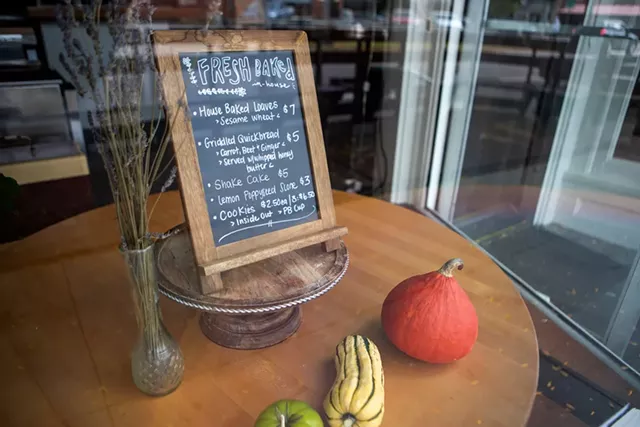 FRESH BAKed
in-house!
• House Baked Loaves $7
> Sesame Wheat <
• Griddled Quickbread $5
> Carrot, Beet + Ginger <
> Served w/whipped honey
butter <
• Shake Cake $5
• Lemon Poppyseed Scone $3
• Cookies $2.50ea/3-$6.50
> Inside Out > PB Cup